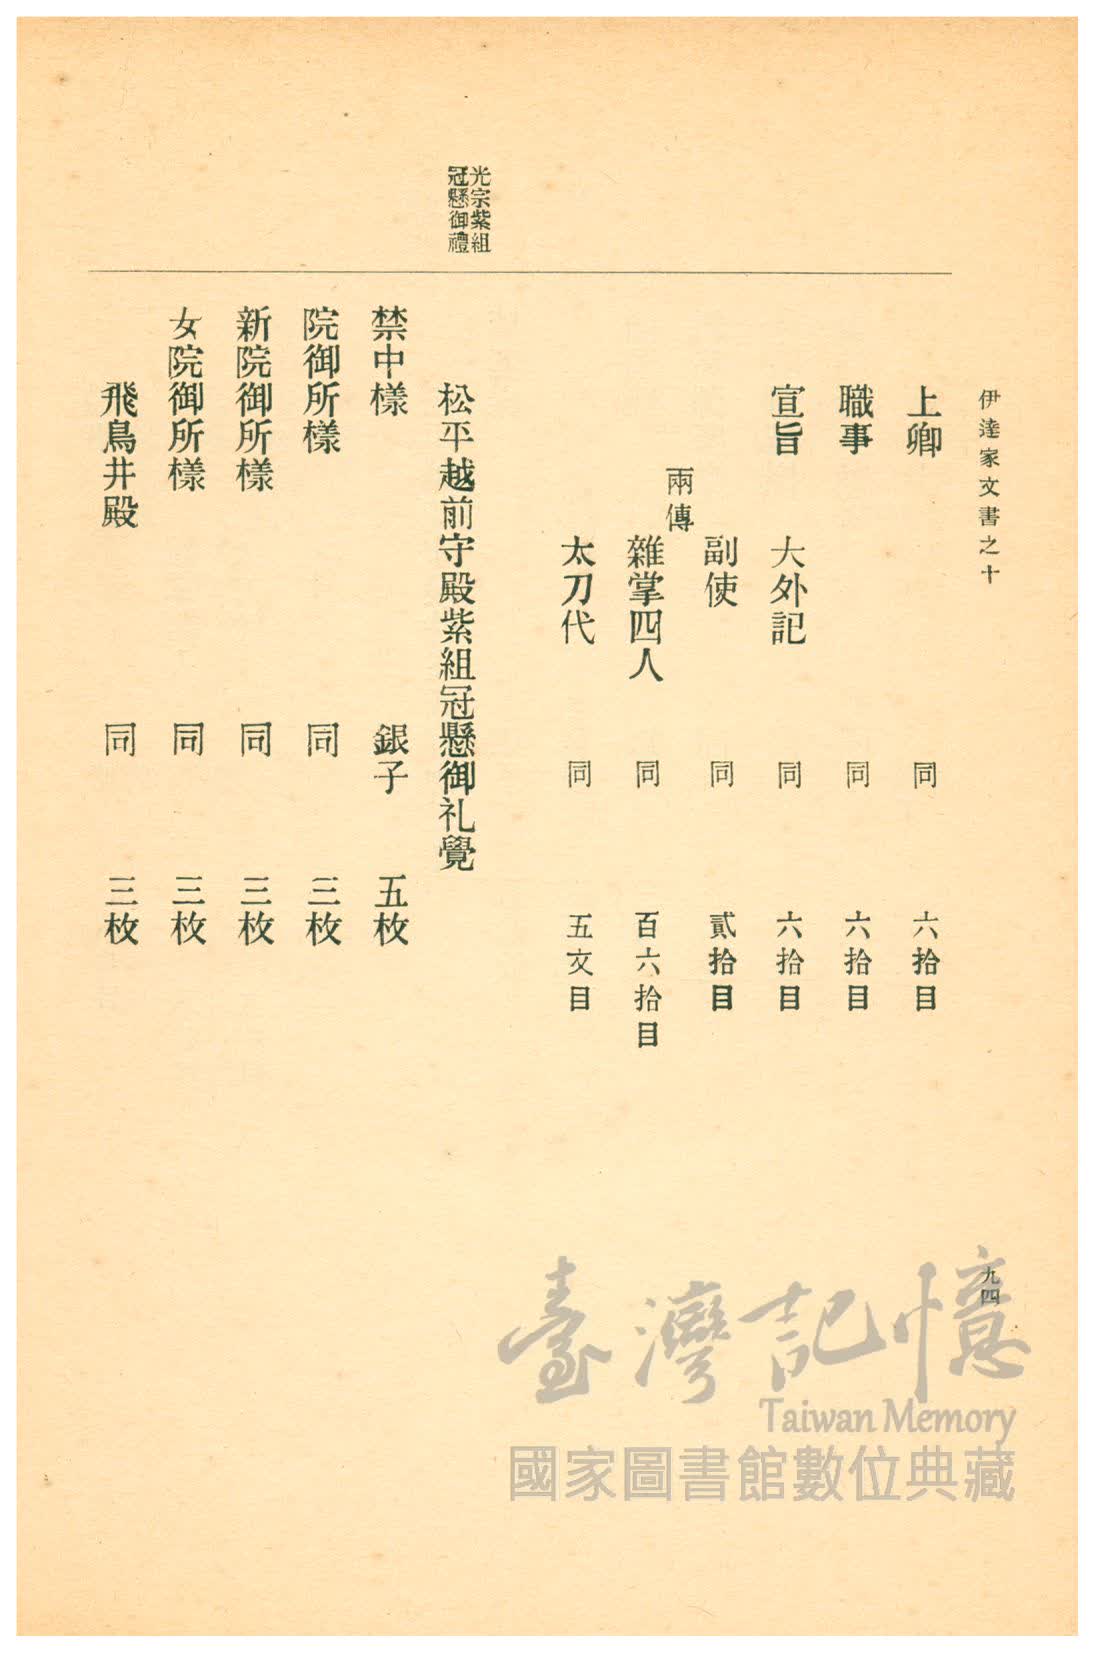 伊達家文書之十
九四
上卿　同　六拾目
職事　同　六拾目
宣旨　大外記　同　六拾目
副使　同　貳拾目
兩傳
雜掌四人　同　百六拾目
太刀代　同　五文目
光宗紫組
冠懸御禮
松平越前守殿紫組冠懸御礼覺
禁中樣　銀子　五枚
院御所樣　同　三枚
新院御所樣　同　三枚
女院御所樣　同　三枚
飛鳥井殿　同　三枚
臺灣記憶
Taiwan Memory
國家圖書館數位典藏